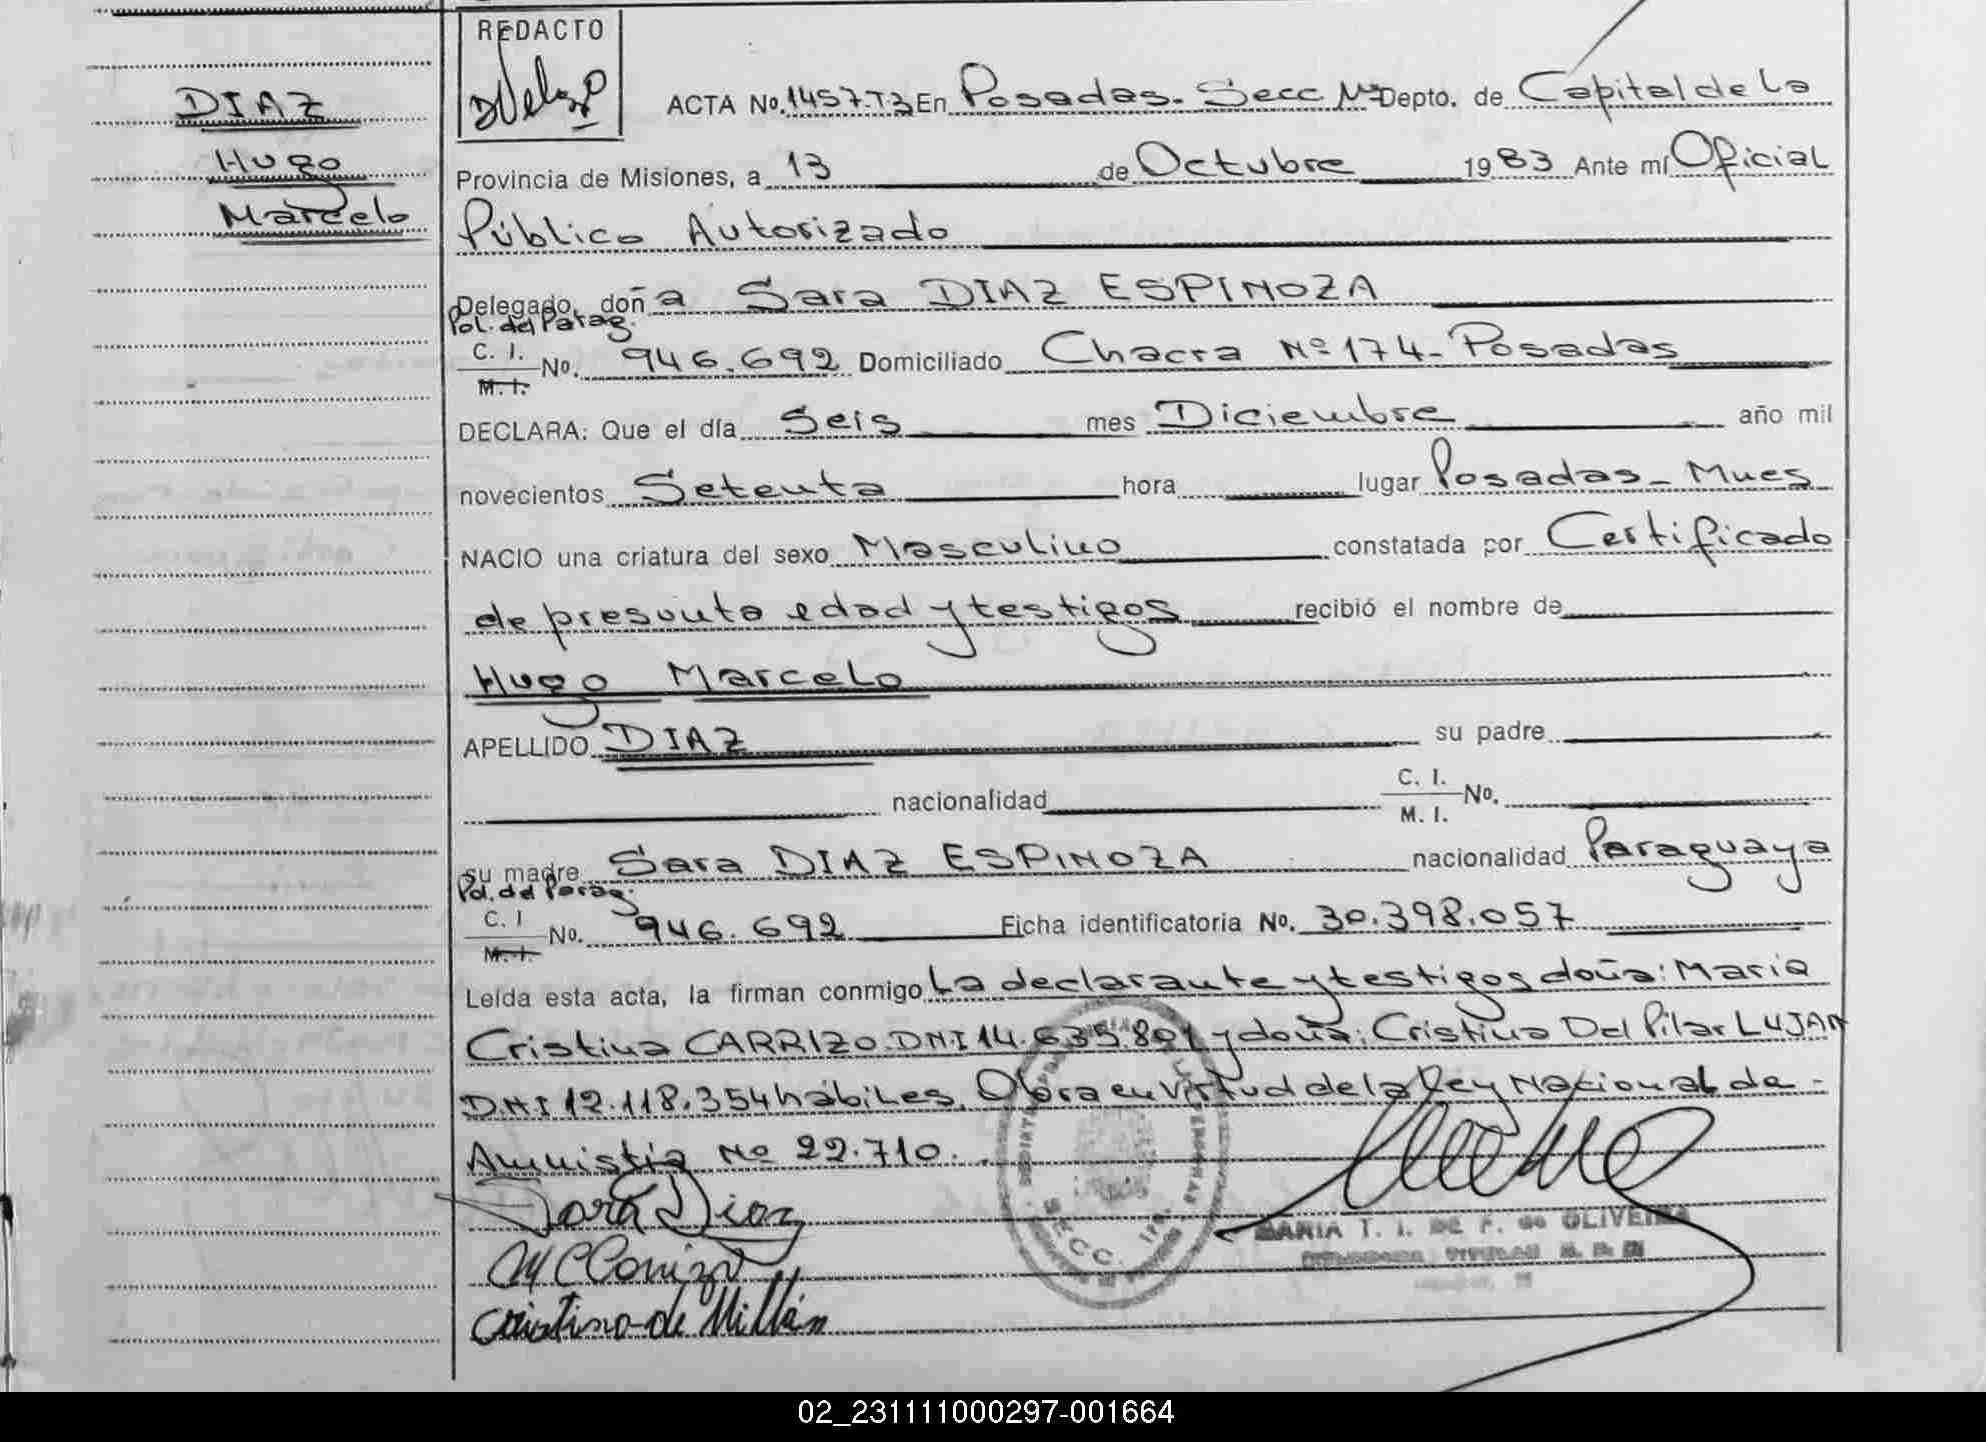 REDACTO
DIAZ
Hugo
Marcelo
ACTA No. 1457-T3 En Posadas. Secc Depto. de Capital de la
Provincia de Misiones, a 13 de Octubre 1983 Ante mí Oficial
Público Autorizado
Delegado, doña Sara DIAZ ESPINOZA
Pol. del Parag.
C. I. M. I. No. 946.692 Domiciliado Chacra Nº 174- Posadas
DECLARA: Que el día Seis mes Diciembre año mil
novecientos Setenta hora lugar Posadas- Mnes
NACIO una criatura del sexo Masculino constatada por Certificado
de presunta edad y testigos recibió el nombre de
Hugo Marcelo
APELLIDO DIAZ su padre
nacionalidad C. I. M. I. No.
su madre Sara DIAZ ESPINOZA nacionalidad Paraguaya
Pol. del Parag.
C. I M. I. No. 946.692 Ficha identificatoria No. 30.398.057
Leída esta acta, la firman conmigo la declarante y testigos doña: Maria
Cristina CARRIZO DNI 14.635.801 y doña: Cristina Del Pilar LUJAN
DNI 12.118.354 hábiles. Obra en virtud de la Ley Nacional de
Amnistia Nº 22.710.
Sara Diaz
MC Carrizo
Cristina de Millán
SECC.
MARIA T. I. DE F. de OLIVEIRA
02_231111000297-001664